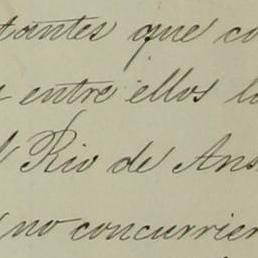 tantes que co
entre ellos lo
Rio de Ans
no concurrier